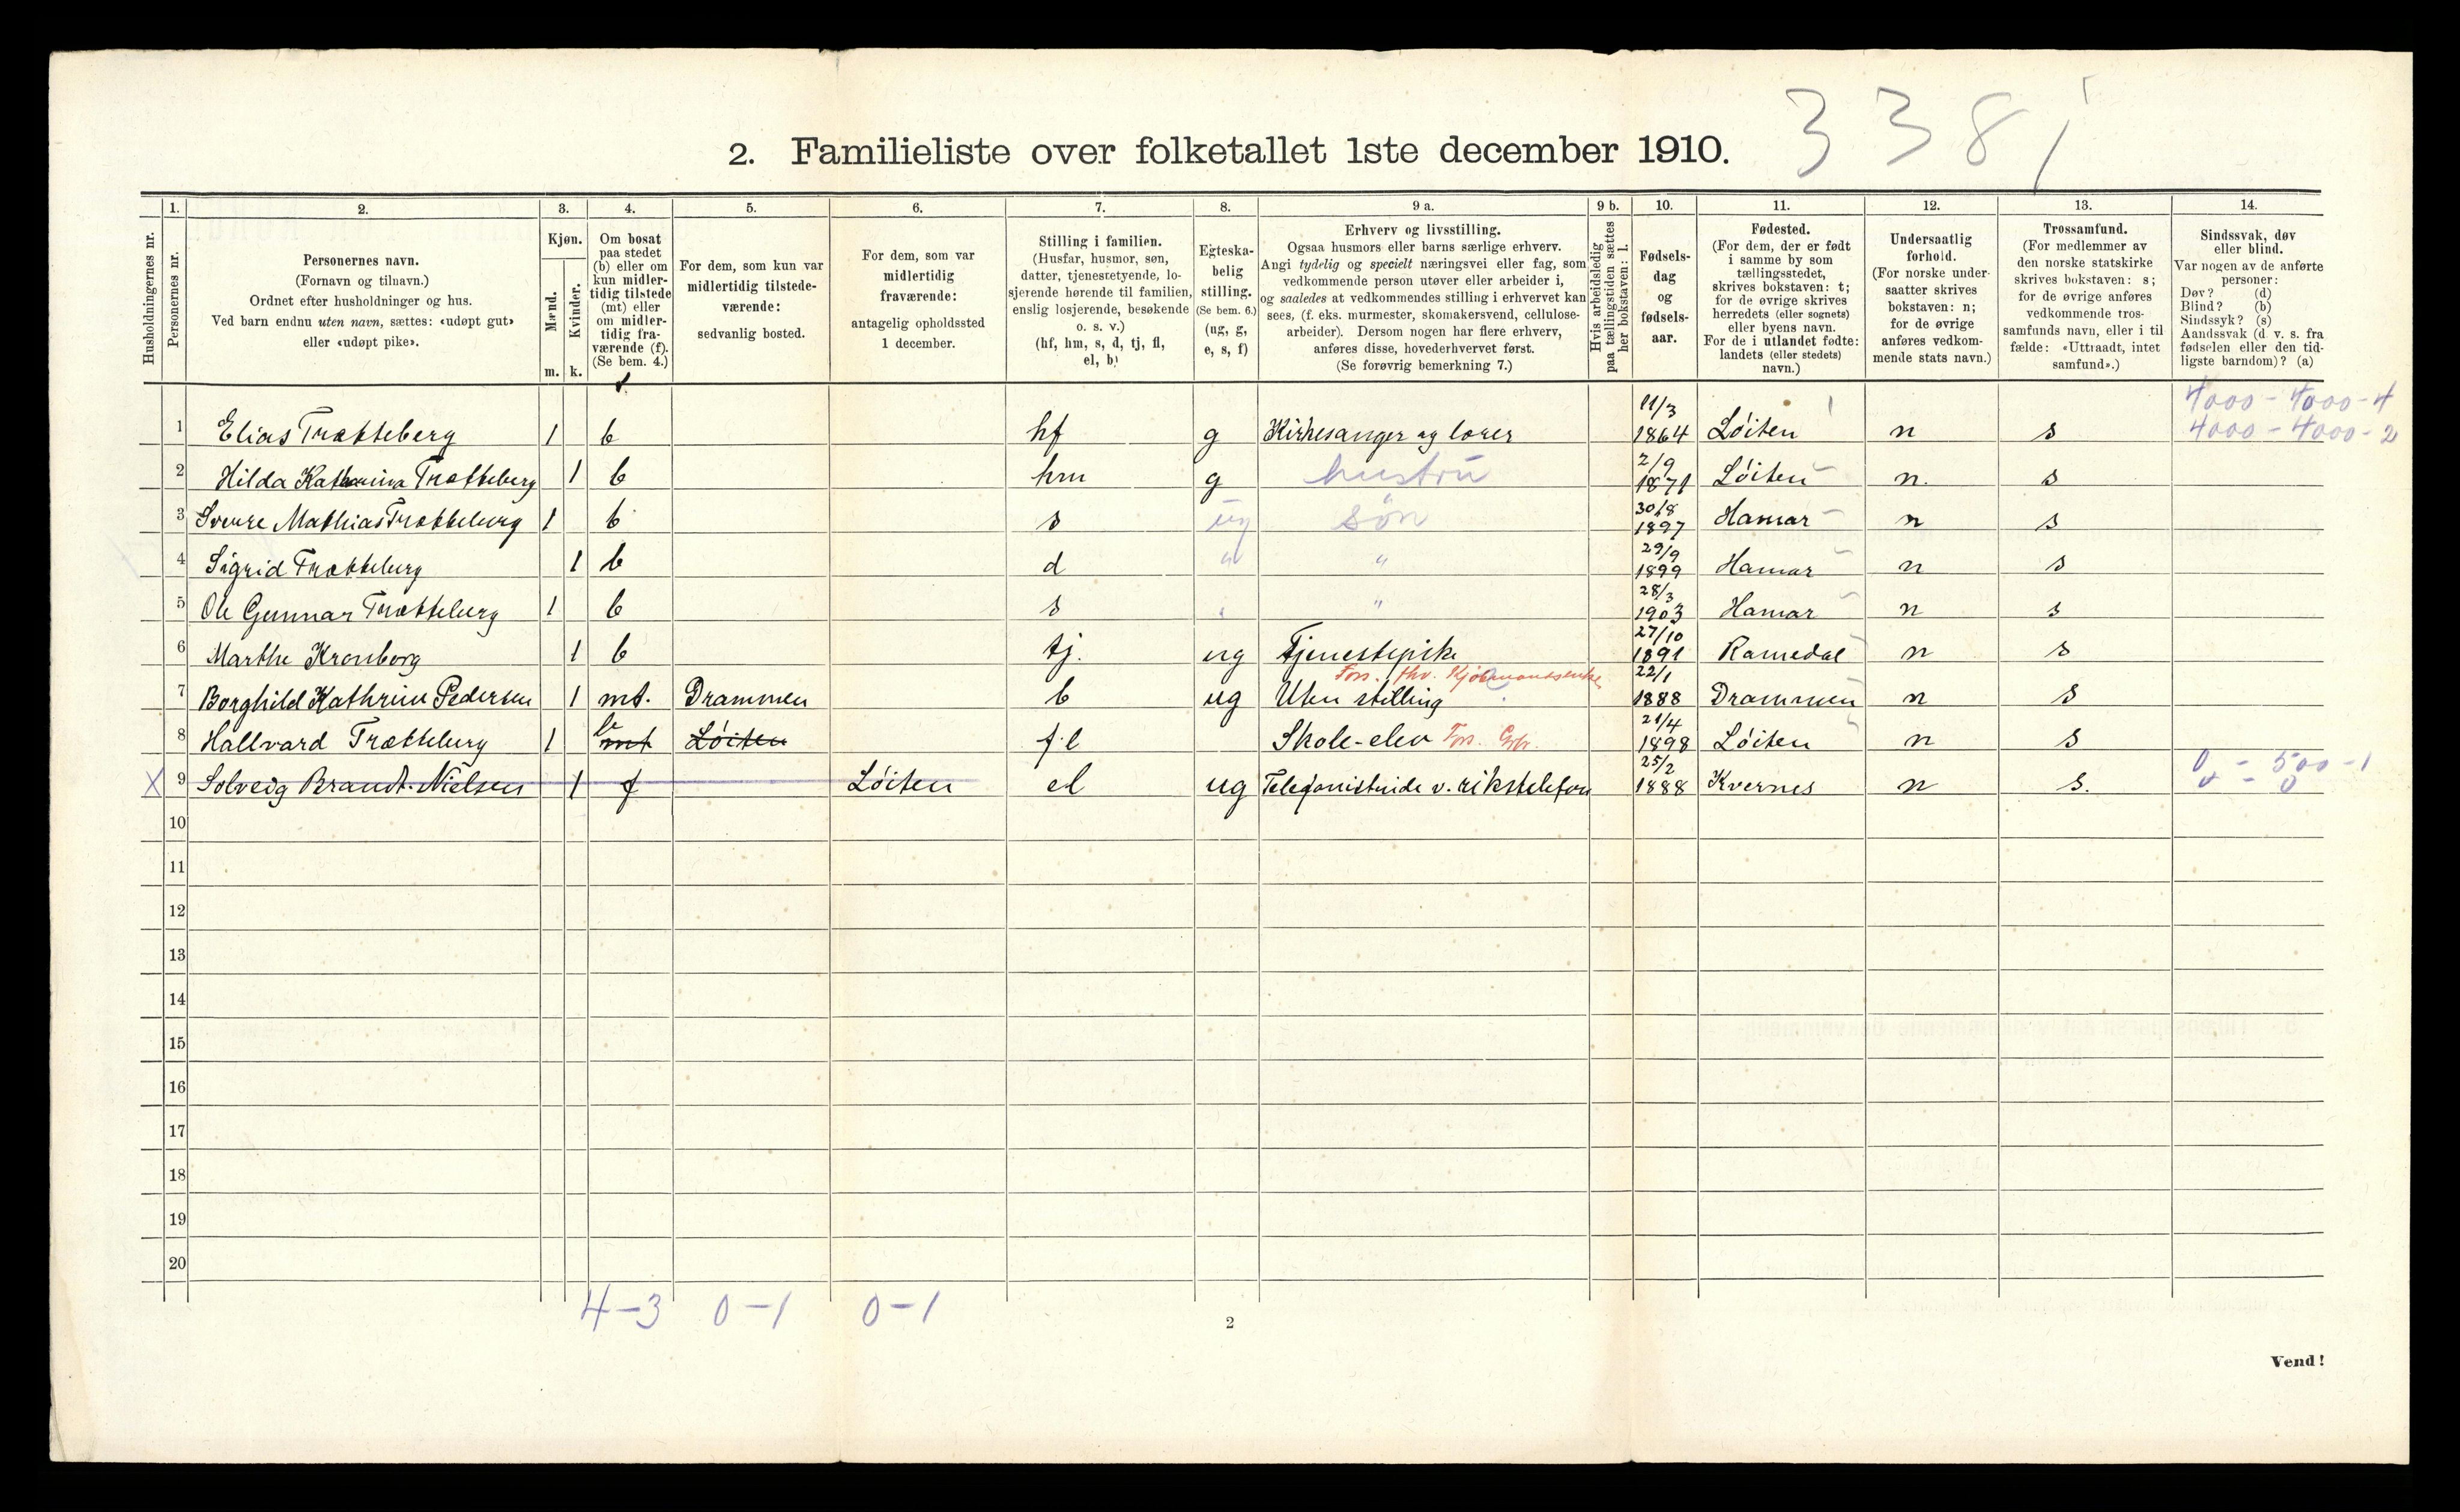 3 3 8 1
2. Familieliste over folketallet 1ste december 1910.
1. 2. 3. 4. 5. 6. 7. 8. 9 a. 9 b. 10. 11. 12. 13. 14.
Husholdningernes nr.
Personernes nr.
Personernes navn.
(Fornavn og tilnavn.)
Ordnet efter husholdninger og hus.
Ved barn endnu uten navn, sættes: «udøpt gut»
eller «udøpt pike».
Kjøn.
Mænd.
Kvinder.
m. k.
Om bosat
paa stedet
(b) eller om
kun midler-
tidig tilstede
(mt) eller
om midler-
tidig fra-
værende (f).
(Se bem. 4.)
For dem, som kun var
midlertidig tilstede-
værende:
sedvanlig bosted.
For dem, som var
midlertidig
fraværende:
antagelig opholdssted
1 december.
Stilling i familien.
(Husfar, husmor, søn,
datter, tjenestetyende, lo-
sjerende hørende til familien,
enslig losjerende, besøkende
o. s. v.)
(hf, hm, s, d, tj, fl,
el, b)
Egteska-
belig
stilling.
(Se bem. 6.)
(ug, g,
e, s, f)
Erhverv og livsstilling.
Ogsaa husmors eller barns særlige erhverv.
Angi tydelig og specielt næringsvei eller fag, som
vedkommende person utøver eller arbeider i,
og saaledes at vedkommendes stilling i erhvervet kan
sees, (f. eks. murmester, skomakersvend, cellulose-
arbeider). Dersom nogen har flere erhverv,
anføres disse, hovederhvervet først.
(Se forøvrig bemerkning 7.)
Hvis arbeidsledig
paa tællingstiden sættes
her bokstaven: l.
Fødsels-
dag
og
fødsels-
aar.
Fødested.
(For dem, der er født
i samme by som
tællingsstedet,
skrives bokstaven: t;
for de øvrige skrives
herredets (eller sognets)
eller byens navn.
For de i utlandet fødte:
landets (eller stedets)
navn.)
Undersaatlig
forhold.
(For norske under-
saatter skrives
bokstaven: n;
for de øvrige
anføres vedkom-
mende stats navn.)
Trossamfund.
(For medlemmer av
den norske statskirke
skrives bokstaven: s;
for de øvrige anføres
vedkommende tros-
samfunds navn, eller i til
fælde: «Uttraadt, intet
samfund».)
Sindssvak, døv
eller blind.
Var nogen av de anførte
personer:
Døv? (d)
Blind? (b)
Sindssyk? (s)
Aandssvak (d. v. s. fra
fødselen eller den tid-
ligste barndom)? (a)
4000 - 4000 - 4
1 Elias Trætteberg 1 b hf g Kirkesanger og lærer 11/3 1864 Løiten n s 4000 - 4000 - 2
2 Hilda Kathrina Trætteberg 1 b hm g hustru 2/9 1871 Løiten n. s
3 Sverre Mathias Trætteberg 1 b s ug søn 30/8 1897 Hamar n s
4 Sigrid Trætteberg 1 b d " " 29/9 1899 Hamar n s
5 Ole Gunnar Trætteberg 1 b s " " 28/3 1903 Hamar n s
6 Marthe Kronborg 1 b tj. ug Tjenestepike 27/10 1891 Romedal n s
Fors.
7 Borghild Kathrine Pedersen 1 mt. Drammen b ug Uten stilling 22/1 1888 Drammen n s
8 Hallvard Trætteberg 1 b mt Løiten f.l Skole-elev Fors. Gbr. 21/4 1898 Løiten n s
X 9 Solveig Brandt-Nielsen 1 f Løiten el ug Telefonistinde v. rikstelefon 25/2 1888 Kvernes n s. 0 - 500 - 1
0 - 0
10
11
12
13
14
15
16
17
18
19
20
4 - 3 0 - 1 0 - 1
2
Vend!